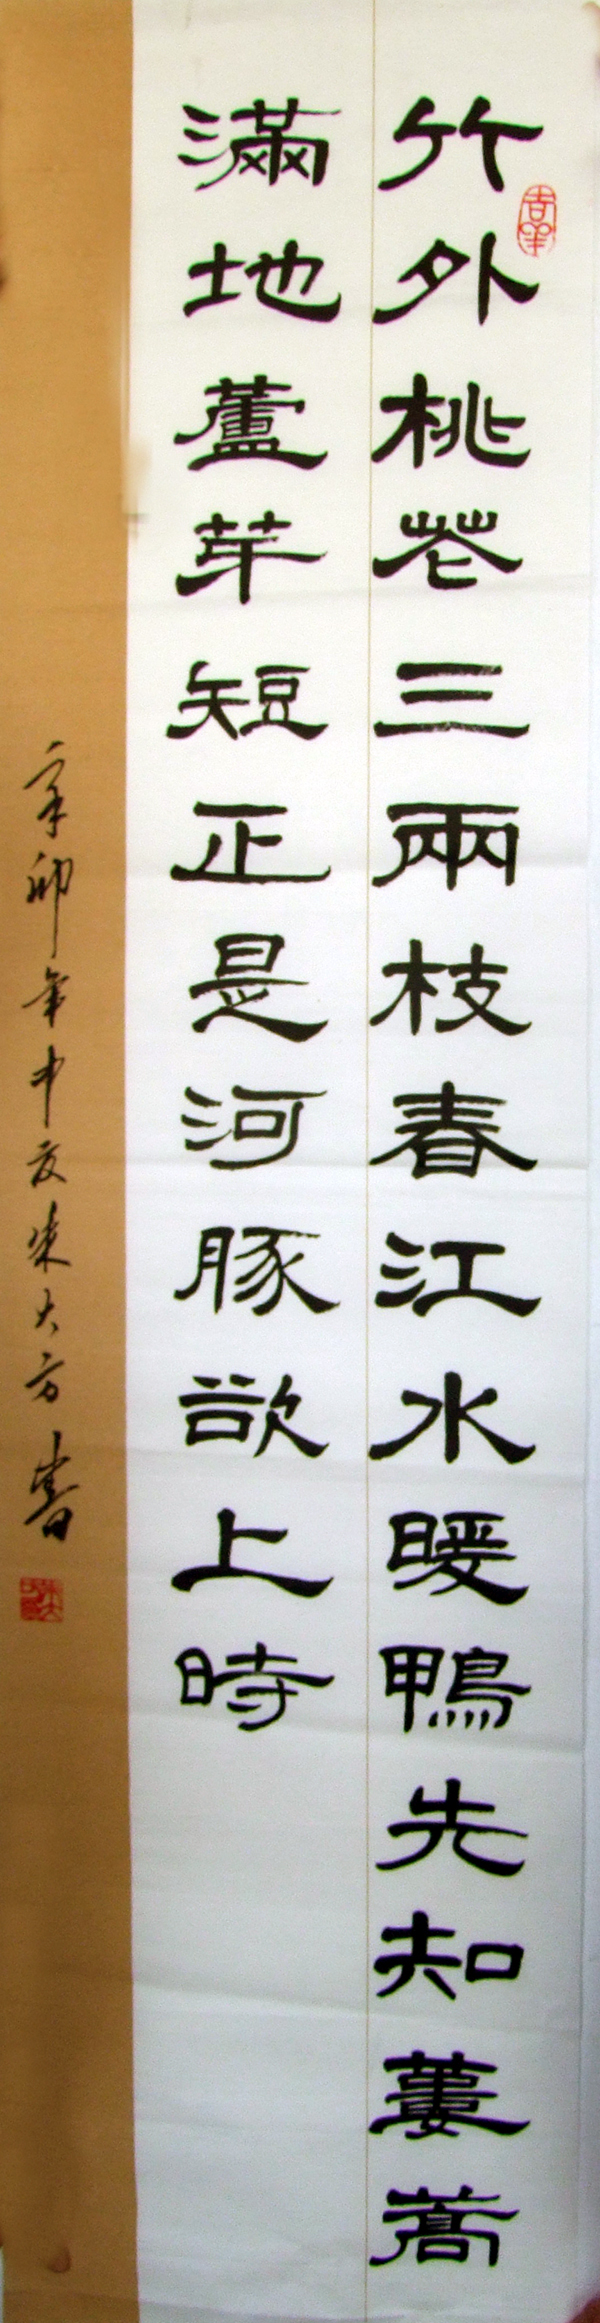 竹外桃花三兩枝春江水暖鴨先知蔞蒿
滿地蘆芽短正是河豚欲上時
辛卯年中友朱大方書